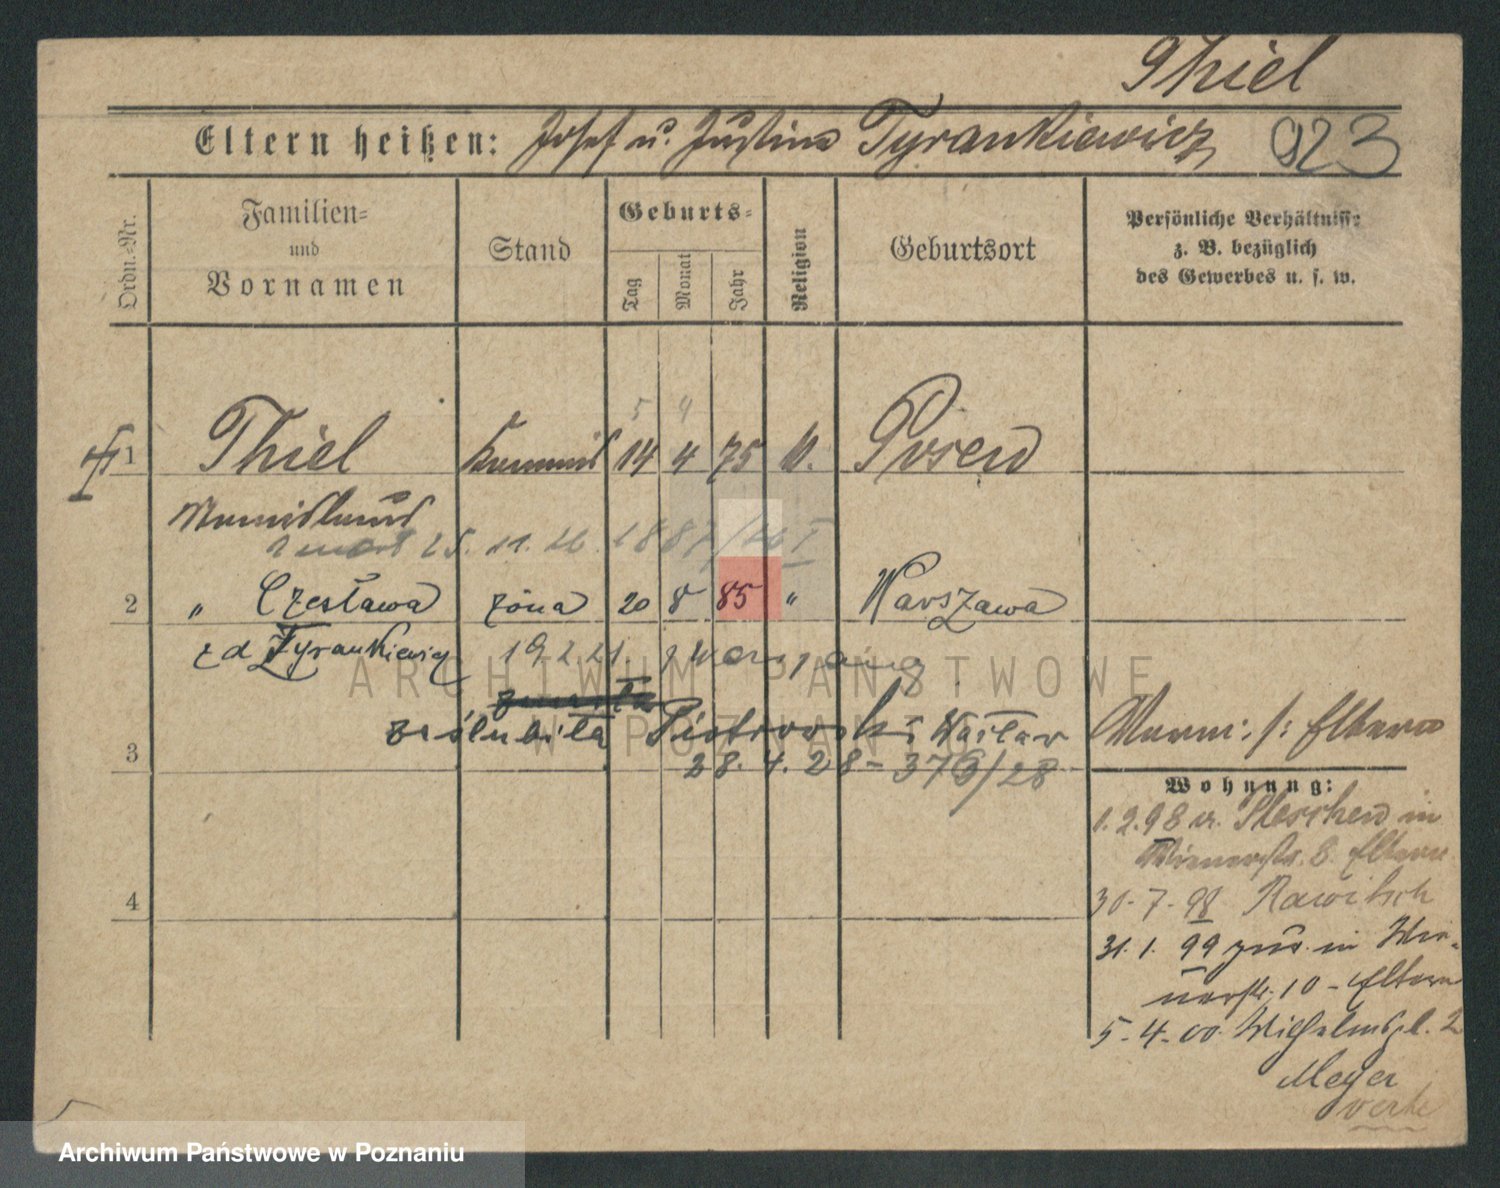 Thiel
Eltern heißen: Josef u. Justina Tyrankiewicz 923
Ordn.-Nr.
Familien-
und
Vornamen
Stand
Geburts-
Tag
Monat
Jahr
Religion
Geburtsort
Persönliche Verhältnisse
z. B. bezüglich
des Gewerbes u. s. w.
5 4
1 Thiel 14 4 75 Posen
25. 11. 26. 1887/26 I
2 " Czesława żona 20 8 85 " Warszawa
z d Tyrankiewicz 19 2 21
ARCHIWUM PAŃSTWOWE
W POZNANIU
zmarła
zaślubiła Piotrowski Wacław
3
28. 4. 28 - 376/28
Eltern
Wohnung:
1.2.98 Pleschen in
Wienerstr. 8. Eltern
30-7-98 Rawitsch
31.1.99 in Wie-
nerstr. 10 - Eltern
5-4-00. Wilhelmspl. 2
Meyer
4
Archiwum Państwowe w Poznaniu